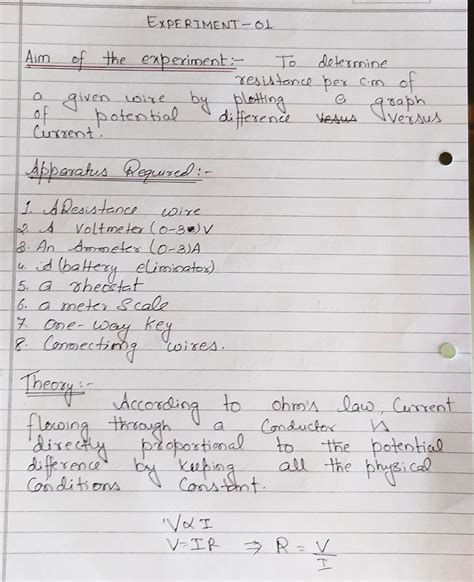 EXPERIMENT-01
Aim of the experiment:- To determine
resistance per c.m of
a given wire by plotting a graph
of potential difference vesus versus
Current.
Apparatus Required:-
1. A Resistance wire
2. A voltmeter (0-3)V
3. An Ammeter (0-3)A
4. (battery eliminator)
5. a rheostat
6. a meter Scale
7. one-way key
8. Connecting wires.
Theory:-
According to ohm's law, Current
flowing through a Conductor is
directly proportional to the potential
difference by keeping all the physical
Conditions Constant.
V∝I
V=IR ⇒ R = V/I